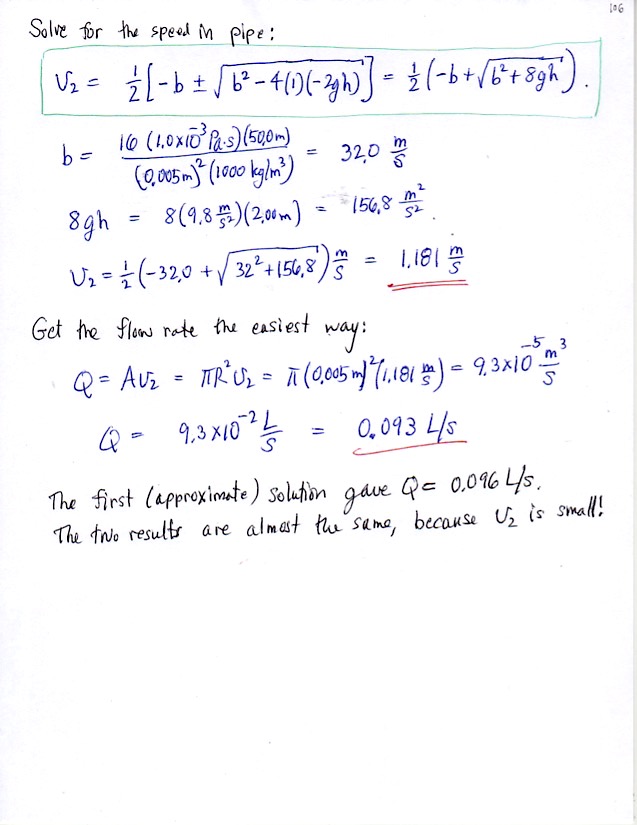 106
Solve for the speed in pipe:
υ₂ = ½[-b ± √(b² - 4(1)(-2gh))] = ½(-b + √(b² + 8gh)).
b = 16 (1.0×10⁻³ Pa·s)(50.0m) / (0.005m)² (1000 kg/m³) = 32.0 m/s
8gh = 8(9.8 m/s²)(2.00m) = 156.8 m²/s².
υ₂ = ½(-32.0 + √(32² + 156.8)) m/s = 1.181 m/s
Get the flow rate the easiest way:
Q = Aυ₂ = πR²υ₂ = π(0.005m)²(1.181 m/s) = 9.3×10⁻⁵ m³/s
Q = 9.3×10⁻² L/s = 0.093 L/s
The first (approximate) solution gave Q = 0.096 L/s.
The two results are almost the same, because υ₂ is small!